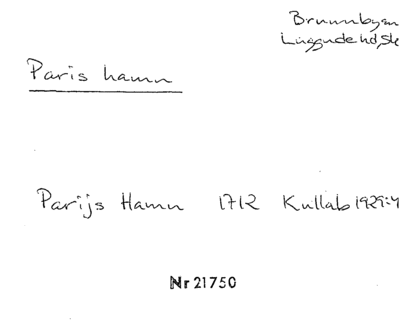 Brunnbysn
Luggude hd, Sk
Paris hamn
Parijs Hamn 1712 Kullab 1929:4
Nr 21750